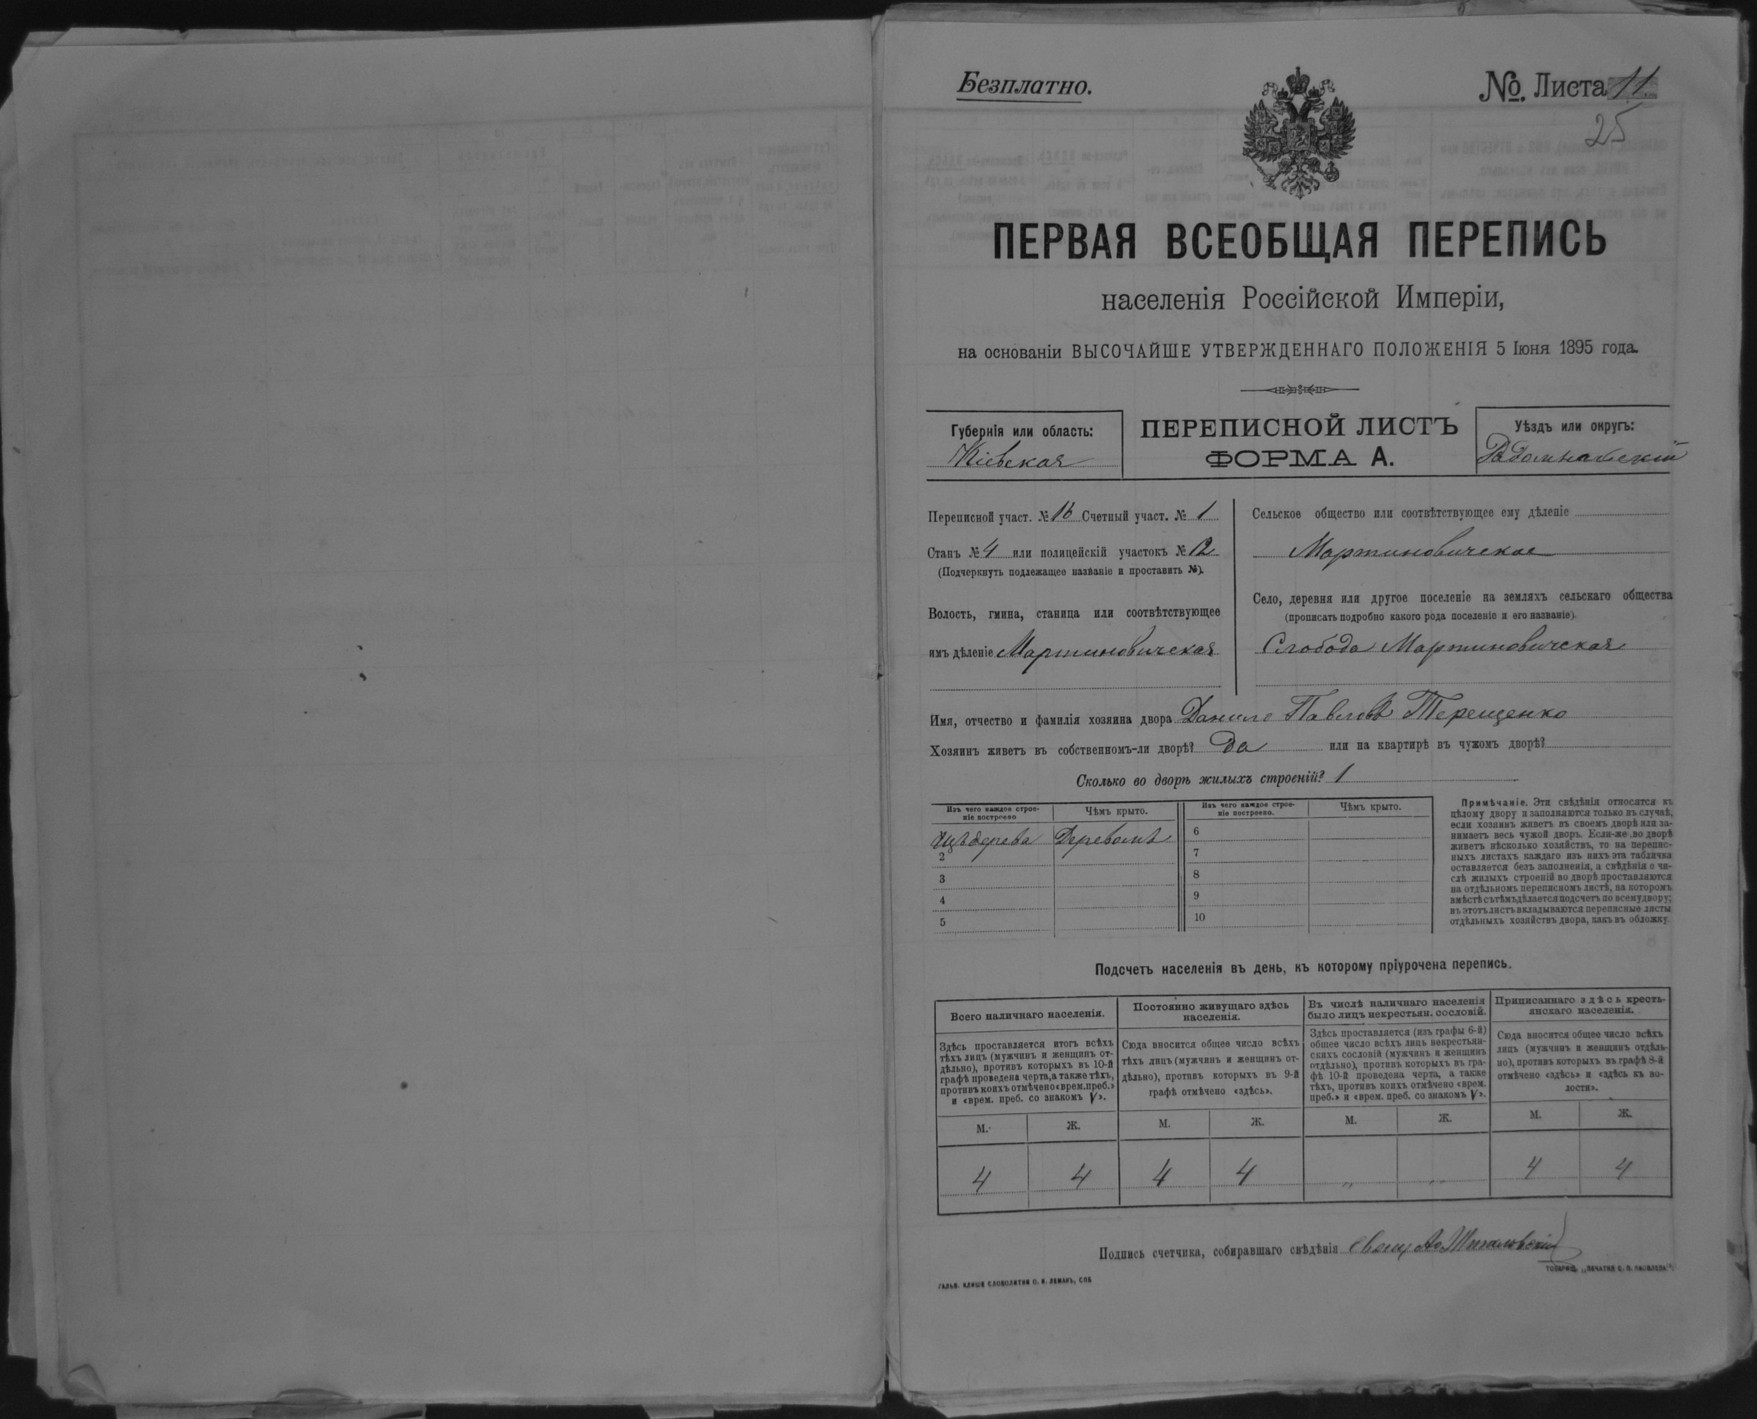 Безплатно.
№. Листа 11
25
ПЕРВАЯ ВСЕОБЩАЯ ПЕРЕПИСЬ
населенія Россійской Имперіи,
на основаніи ВЫСОЧАЙШЕ УТВЕРЖДЕННАГО ПОЛОЖЕНІЯ 5 Іюня 1895 года.
Губернія или область:
Кіевская
ПЕРЕПИСНОЙ ЛИСТЪ
ФОРМА А.
Уѣздъ или округъ:
Радомысльскій
Переписной участ. № 16 Счетный участ. № 1
Станъ № 4 или полицейскій участокъ № 12
(Подчеркнуть подлежащее названіе и проставить №).
Волость, гмина, станица или соотвѣтствующее
имъ дѣленіе Мартиновичская
Сельское общество или соотвѣтствующее ему дѣленіе
Мартиновичское
Село, деревня или другое поселеніе на земляхъ сельскаго общества
(прописать подробно какого рода поселеніе и его названіе).
Слобода Мартиновичская
Имя, отчество и фамилія хозяина двора Данило Павловъ Терещенко
Хозяинъ живетъ въ собственномъ-ли дворѣ? Да или на квартирѣ въ чужомъ дворѣ?
Сколько во дворѣ жилыхъ строеній? 1
Изъ чего каждое строеніе построено
Чѣмъ крыто.
Изъ чего каждое строеніе построено.
Чѣмъ крыто.
Изъ дерева Деревомъ
2
3
4
5
6
7
8
9
10
Примѣчаніе. Эти свѣдѣнія относятся къ
цѣлому двору и заполняются только въ случаѣ,
если хозяинъ живетъ въ своемъ дворѣ или за-
нимаетъ весь чужой дворъ. Если-же во дворѣ
живетъ нѣсколько хозяйствъ, то на перепис-
ныхъ листахъ каждаго изъ нихъ эта табличка
оставляется безъ заполненія, а свѣдѣнія о чи-
слѣ жилыхъ строеній во дворѣ проставляются
на отдѣльномъ переписномъ листѣ, на которомъ
вмѣстѣ съ тѣмъ дѣлается подсчетъ по всему двору;
въ этотъ листъ вкладываются переписные листы
отдѣльныхъ хозяйствъ двора, какъ въ обложку.
Подсчетъ населенія въ день, къ которому пріурочена перепись.
Всего наличнаго населенія.
Здѣсь проставляется итогъ всѣхъ
тѣхъ лицъ (мужчинъ и женщинъ от-
дѣльно), противъ которыхъ въ 10-й
графѣ проведена черта, а также тѣхъ,
противъ коихъ отмѣчено «врем. преб.»
и «врем. преб. со знакомъ V».
Постоянно живущаго здѣсь
населенія.
Сюда вносится общее число всѣхъ
тѣхъ лицъ (мужчинъ и женщинъ от-
дѣльно), противъ которыхъ въ 9-й
графѣ отмѣчено «здѣсь».
Въ числѣ наличнаго населенія
было лицъ некрестьян. сословій.
Здѣсь проставляется (изъ графы 6-й)
общее число всѣхъ лицъ некрестьян-
скихъ сословій (мужчинъ и женщинъ
отдѣльно), противъ которыхъ въ гра-
фѣ 10-й проведена черта, а также
тѣхъ, противъ коихъ отмѣчено «врем.
преб.» и «врем. преб. со знакомъ V».
Приписаннаго здѣсь кресть-
янскаго населенія.
Сюда вносится общее число всѣхъ
лицъ (мужчинъ и женщинъ отдѣль-
но), противъ которыхъ въ графѣ 8-й
отмѣчено «здѣсь» и «здѣсь въ во-
лости».
М. Ж. М. Ж. М. Ж. М. Ж.
4 4 4 4 " " 4 4
Подпись счетчика, собиравшаго свѣдѣнія
ГАЛЬВ. КЛИШЕ СЛОВОЛИТНИ О. И. ЛЕМАНЪ, СПБ
ТОВАРИЩ. „ПЕЧАТНЯ С. П. ЯКОВЛЕВА“.